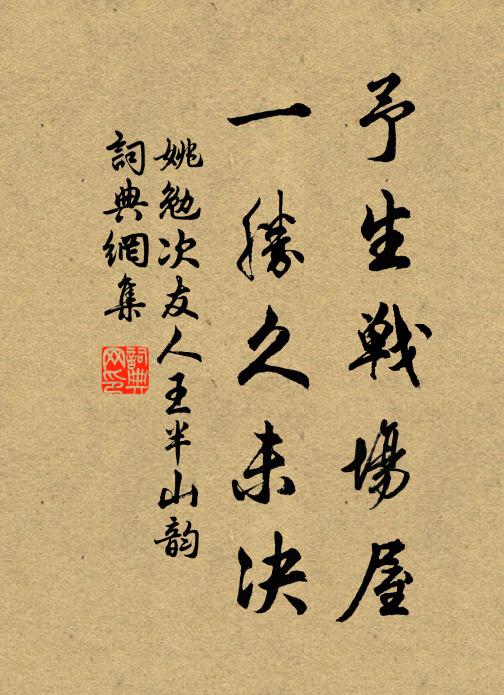 予生戰場屋
一勝久未決
姚勉次友人王半山韵
詞典網集
詞典网印